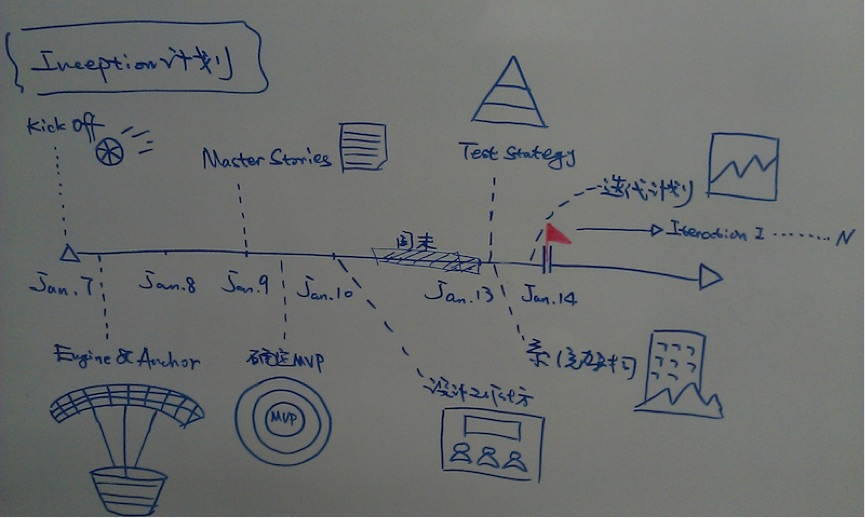 Inception计划
Kick Off
Master Stories
Test stategy
迭代计划
周末
Iteration 1 ....... N
Jan.7
Jan.8
Jan.9
Jan.10
Jan.13
Jan.14
Engine & Anchor
确定MVP
MVP
设计工作坊